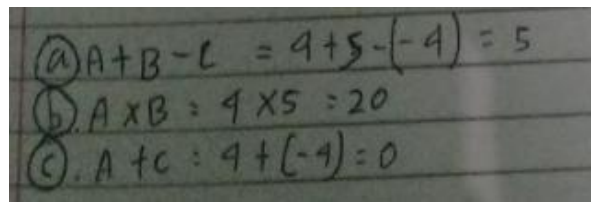 (a) A + B - C = 4 + 5 - (-4) = 5
(b). A x B : 4 x 5 : 20
(c). A + C : 4 + (-4) = 0